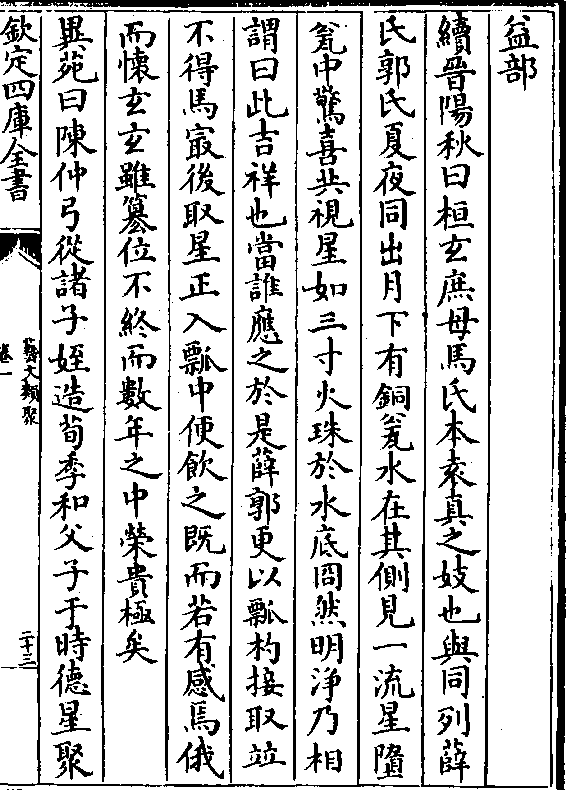 益部
續晉陽秋曰桓玄庶母馬氏本袁真之妓也與同列薛
氏郭氏夏夜同出月下有銅瓮水在其側見一流星墮
瓮中驚喜共視星如二寸火珠於水底冏然明淨乃相
謂曰此吉祥也當誰應之於是薛郭更以瓢杓接取竝
不得馬㝡後取星正入瓢中便飲之既而若有感焉俄
而懷玄玄雖篡位不終而數年之中榮貴極矣
異苑曰陳仲弓從諸子姪造荀季和父子于時德星聚
欽定四庫全書
藝文類聚
卷一
二十三